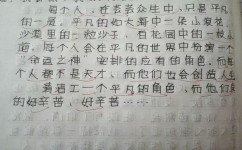 每个人,在芸芸众生中,只是平凡
的一,平凡的如大海中一朵小浪花,
沙漠里的一粒沙子,百花园中的一枝小
每个人会在平凡的世界中扮演一个
命运之神 安排的应有的角色,而
个人都不是天才,而他们也会创造人生
着若工一个平凡的角色,而他们
的好辛苦,好辛苦……